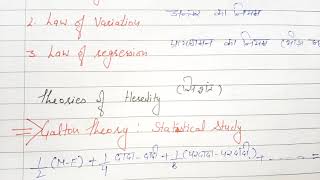 2. Law of Variation का नियम
3. Law of regression का नियम
Theories of Heredity
⇒ Galton Theory : Statistical Study
1/2 (M-F) + 1/4 दादा-दादी + 1/8 (परदादा-परदादी) + ------